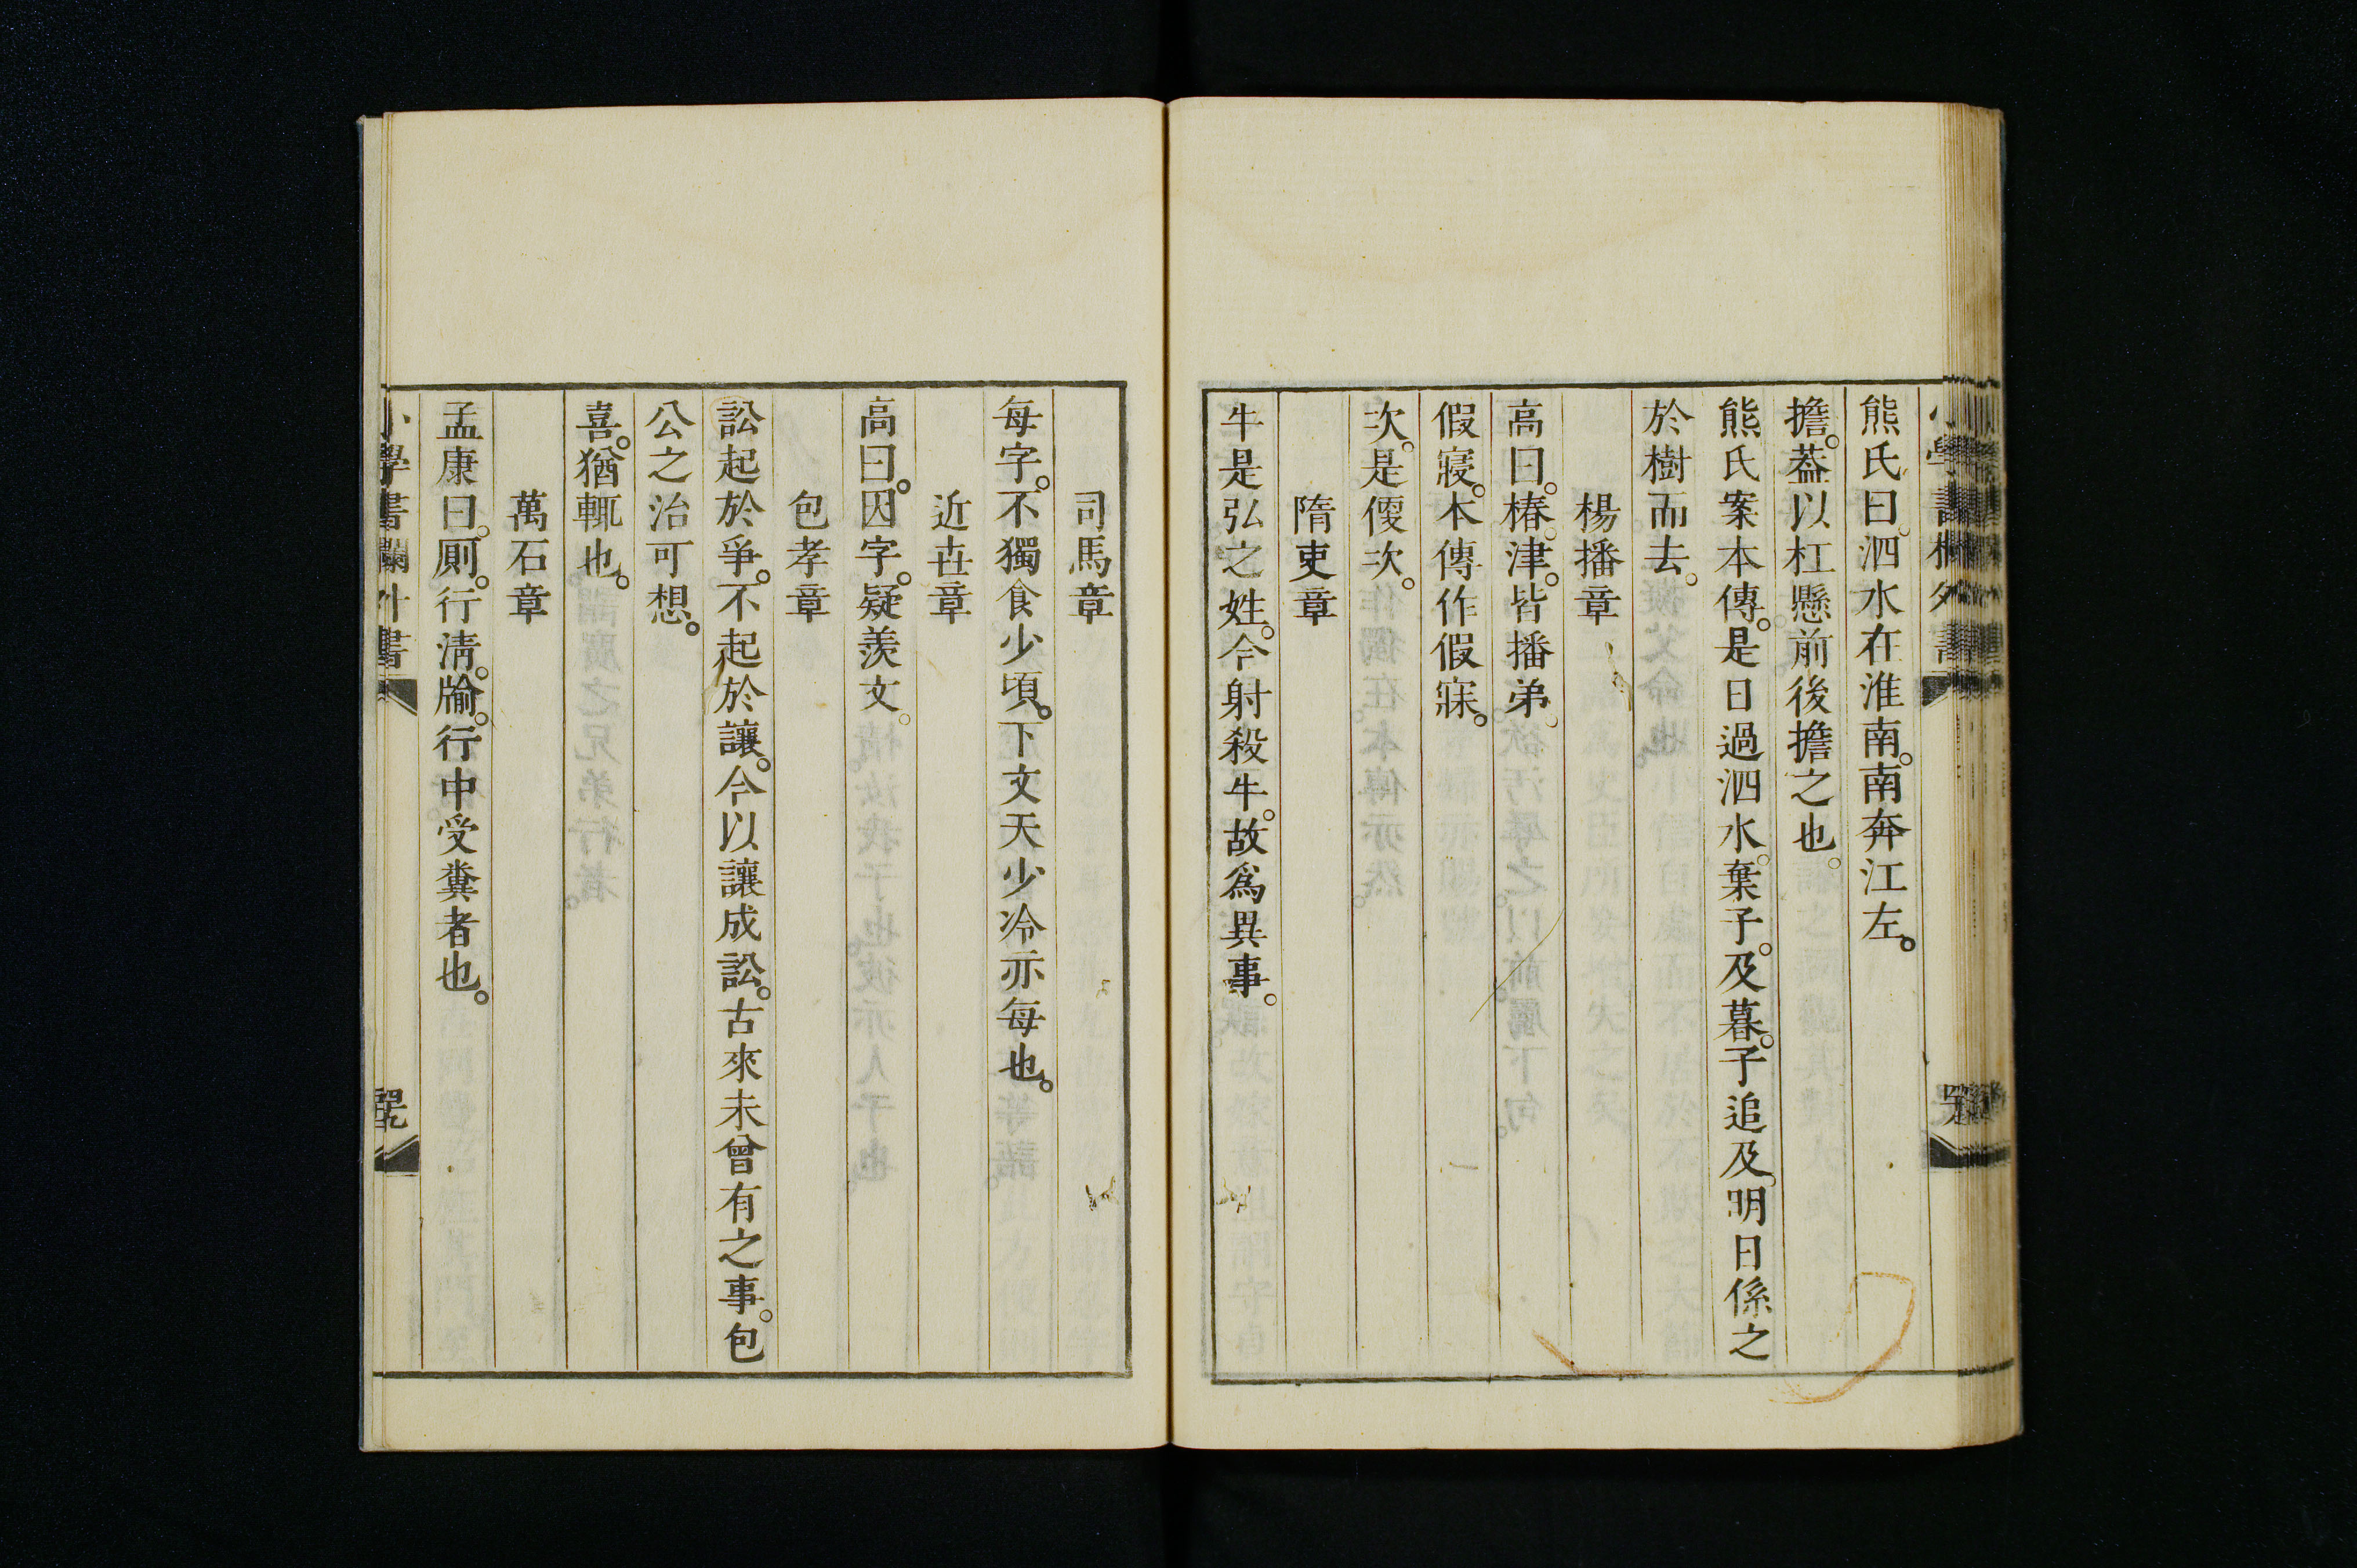 熊氏曰。泗水在淮南。南奔江左。
擔。葢以杠懸前後擔之也。
熊氏案本傳。是日過泗水。棄子。及暮。子追及。明日係之
於樹而去。
楊播章
高曰。椿。津。皆播弟。
假寢。本傳作假寐。
次。是偃次。
隋吏章
牛是弘之姓。今射殺牛。故爲異事。
司馬章
每字。不獨食少頃。下文天少冷亦每也。
近世章
高曰。因字。疑羡文。
包孝章
訟起於爭。不起於讓。今以讓成訟。古來未曾有之事。包
公之治可想。
喜。猶輒也。
萬石章
孟康曰。厠。行淸。牏。行中受糞者也。
小學書欄外書